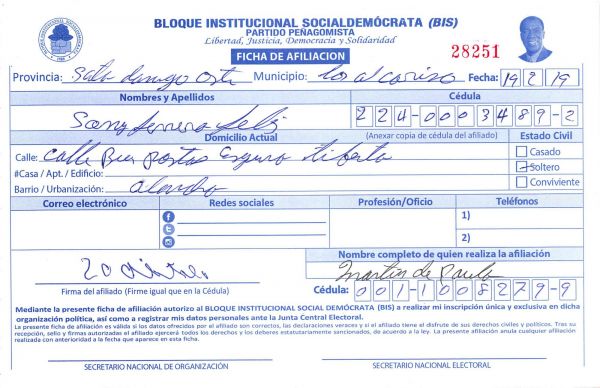 BLOQUE INSTITUCIONAL SOCIALDEMÓCRATA (BIS)
PARTIDO PEÑAGOMISTA
Libertad, Justicia, Democracia y Solidaridad
FICHA DE AFILIACION
28251
Provincia: Municipio: Los alcarrizo Fecha: 19 2 19
Nombres y Apellidos Cédula
224-0003489-2
Domicilio Actual (Anexar copia de cédula del afiliado) Estado Civil
Calle: calle
Casado
#Casa / Apt. / Edificio: Soltero
Barrio / Urbanización: Conviviente
Correo electrónico Redes sociales Profesión/Oficio Teléfonos
1)
2)
Nombre completo de quien realiza la afiliación
Martin de Paula
Firma del afiliado (Firme igual que en la Cédula) Cédula: 001-1008279-9
Mediante la presente ficha de afiliación autorizo al BLOQUE INSTITUCIONAL SOCIAL DEMÓCRATA (BIS) a realizar mi inscripción única y exclusiva en dicha
organización política, así como a registrar mis datos personales ante la Junta Central Electoral.
La presente ficha de afiliación es válida si los datos ofrecidos por el afiliado son correctos, las declaraciones veraces y si el afiliado tiene el disfrute de sus derechos civiles y políticos. Tras su
recepción, sello y firmas autorizadas el afiliado ejercerá todos los derechos y los deberes estatutariamente sancionados, de acuerdo a la ley. La presente afiliación anula cualquier afiliación
realizada con anterioridad a la fecha que aparece en esta ficha.
SECRETARIO NACIONAL DE ORGANIZACIÓN SECRETARIO NACIONAL ELECTORAL